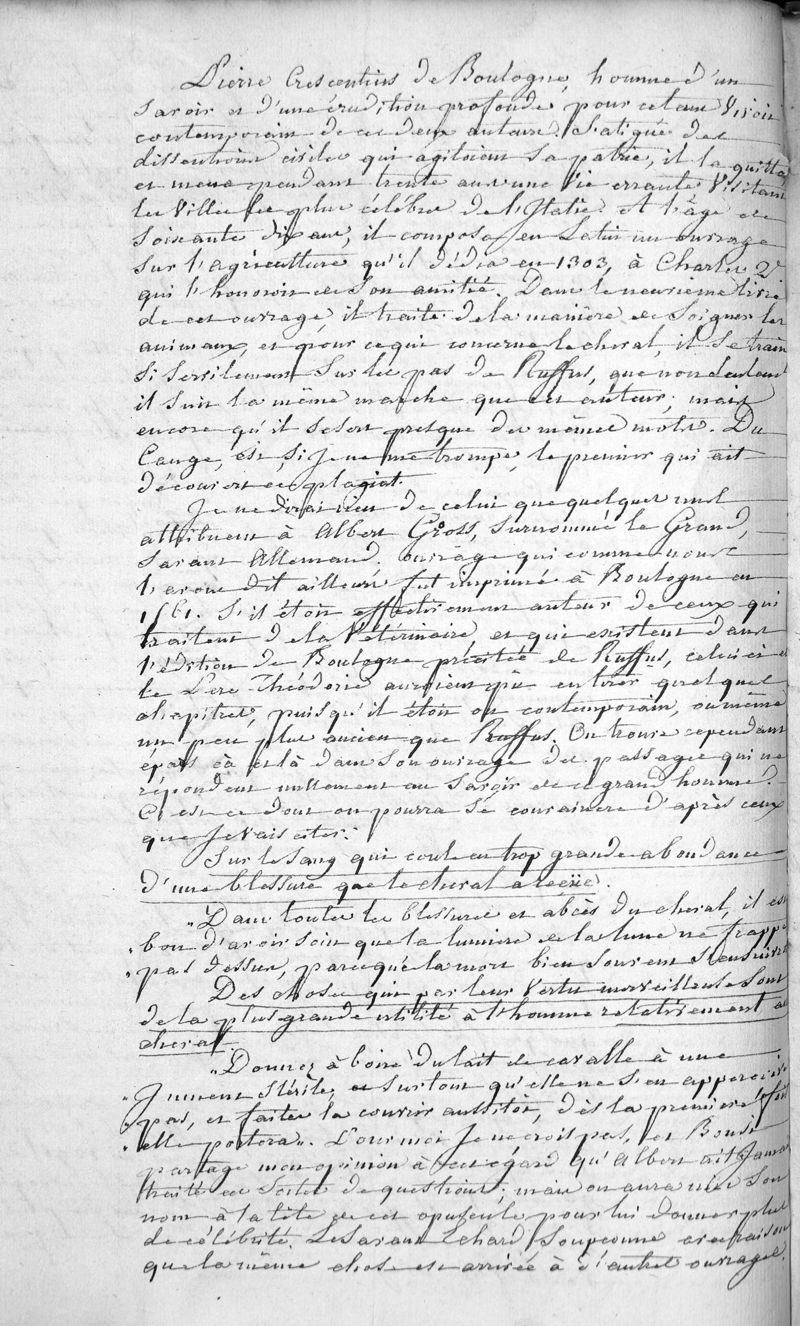 Pierre Crescentius de Boulogne, homme d'un
savoir et d'une érudition profonde pour cet age vivoit
contemporain de ces deux auteurs. Fatigué des
dissentions civiles qui agitoient sa patrie, il la quitta
et mena pendant trente ans une vie errante visitant
les villes les plus célébres de l'Italie. A l'âge de
soixante dix ans, il composa en Latin un ouvrage
sur l'agriculture qu'il dédia en 1303, à Charles 2d
qui l'honoroit de son amitié. Dans le neuvieme livre
de cet ouvrage, il traite de la manière de soigner les
animaux, et pour ce qui concerne le cheval, il se traine
si servilement sur les pas de Ruffus, que non seulement
il suit la même marche que cet auteur; mais
encore qu'il se sert presque des mêmes mots. Du
Cange, est, si je ne me trompe, le premier qui ait
découvert ce plagiat.
Je ne dirai rien de celui que quelques uns
attribuent à Albert Gross, surnommé le Grand,
savant Allemand. ouvrage qui comme nous
l'avons dit ailleurs fut imprimé à Boulogne en
1561. S'il étoit effectivement auteur de ceux qui
traitent de la Vétérinaire et qui existent dans
l'édition de Boulogne précitée de Ruffus, celui ci et
le Pere Théodoric auroient pû en tirer quelques
chapitres, puisqu'il étoit ou contemporain, ou même
un peu plus ancien que Ruffus. On trouve cependant
épars çà et là dans son ouvrage des passages qui ne
répondent nullement au savoir de ce grand homme.
C'est ce dont on pourra se convaincre d'après ceux
que je vais citer:
Sur le sang qui coule en trop grande abondance
d'une blessure que le cheval a reçüe.
"Dans toutes les blessures et abcès du cheval, il est
"bon d'avoir soin que la lumiere de la lune ne frappe
"pas dessus, parce que la mort bien souvent s'ensuivroit
Des choses qui par leur vertu merveilleuse sont
de la plus grande utilité à l'homme relativement au
cheval.
"Donnez à boire du lait de cavalle à une
"Jument stérile, et surtout qu'elle ne s'en apperçoive
"pas, et faites la couvrir aussitôt, dès la premiere fois
"elle portera". Pour moi je ne crois pas, et Bonsi
partage mon opinion à cet égard qu'Albert ait jamais
traité ces sortes de questions, mais on aura mis son
nom à la tête de cet opuscule pour lui donner plus
de célébrité. Le savant Echard soupçonne avec raison
que la même chose est arrivée à d'autres ouvrages.